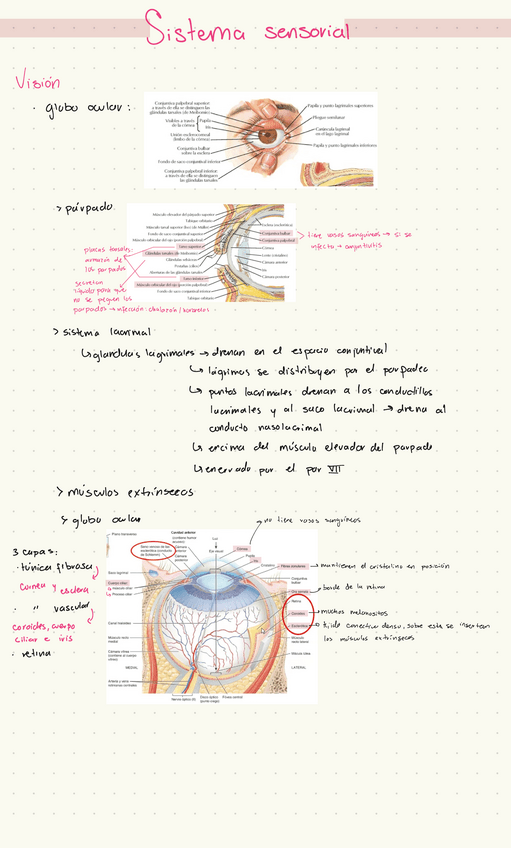 Sistema sensorial
Visión
· globo ocular:
Conjuntiva palpebral superior:
a través de ella se distinguen las
glándulas tarsales (de Meibomio)
Visibles a través
de la córnea
Pupila
Iris
Unión esclerocorneal
(limbo de la córnea)
Conjuntiva bulbar
sobre la esclera
Fondo de saco conjuntival inferior
Conjuntiva palpebral inferior:
a través de ella se distinguen
las glándulas tarsales
Papila y punto lagrimales superiores
Pliegue semilunar
Carúncula lagrimal
en el lago lagrimal
Papila y punto lagrimales inferiores
> párpado
Músculo elevador del párpado superior
Tabique orbitario
Músculo tarsal superior (liso; de Müller)
Fondo de saco conjuntival superior
Músculo orbicular del ojo (porción palpebral)
Tarso superior
Glándulas tarsales (de Meibomio)
Glándulas sebáceas
Pestañas (cilios)
Aberturas de las glándulas tarsales
Tarso inferior
Músculo orbicular del ojo (porción palpebral)
Fondo de saco conjuntival inferior
Tabique orbitario
Conjuntiva bulbar
Conjuntiva palpebral
Córnea
Lente (cristalino)
Cámara anterior
Iris
Cámara posterior
tiene vasos sanguíneos → si se
infecta → conjuntivitis
placas tarsales:
armazón de
los párpados
secretan
líquido para que
no se peguen los
párpados → infección: chalazión/orzuelos
> sistema lacrimal
glándulas lagrimales → drenan en el espacio conjuntival
lágrimas se distribuyen por el párpado
puntos lacrimales drenan a los conductillos
lacrimales y al saco lacrimal → drena al
conducto nasolacrimal
encima del músculo elevador del párpado
enervado por el par VII
> músculos extrínsecos
> globo ocular
no tiene vasos sanguíneos
3 capas:
· túnica fibrosa
córnea y esclera
· " vascular
coroides, cuerpo
ciliar e iris
· retina
Plano transverso
Cavidad anterior
(contiene humor
acuoso)
Cámara
anterior
Cámara
posterior
Luz
Eje visual
Córnea
Pupila
Iris
Cristalino
Fibras zonulares
Saco lagrimal
Cuerpo ciliar:
Músculo ciliar
Proceso ciliar
Conjuntiva
bulbar
Ora serrata
Retina
Coroides
Esclerótica
Canal hialoideo
Músculo recto
medial
Músculo
recto lateral
Cámara vítrea
(contiene el
cuerpo vítreo)
Mácula lútea
MEDIAL
LATERAL
Arteria y vena
retinianas centrales
Nervio óptico (II)
Disco óptico
(punto ciego)
Fóvea central
mantienen el cristalino en posición
borde de la retina
muchos melanocitos
tejido conectivo denso, sobre esta se insertan
los músculos extrínsecos